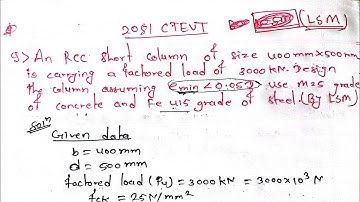 2081 CTEVT
(LSM)
Q) An RCC short column of size 400mm x 500mm
is carrying a factored load of 3000 kN. Design
the column assuming emin < 0.05D use M25 grade
of concrete and Fe 415 grade of steel. (By LSM)
Soln
Given data
b = 400mm
d = 500mm
factored load (Pu) = 3000 kN = 3000x10³ N
fck = 25 N/mm²